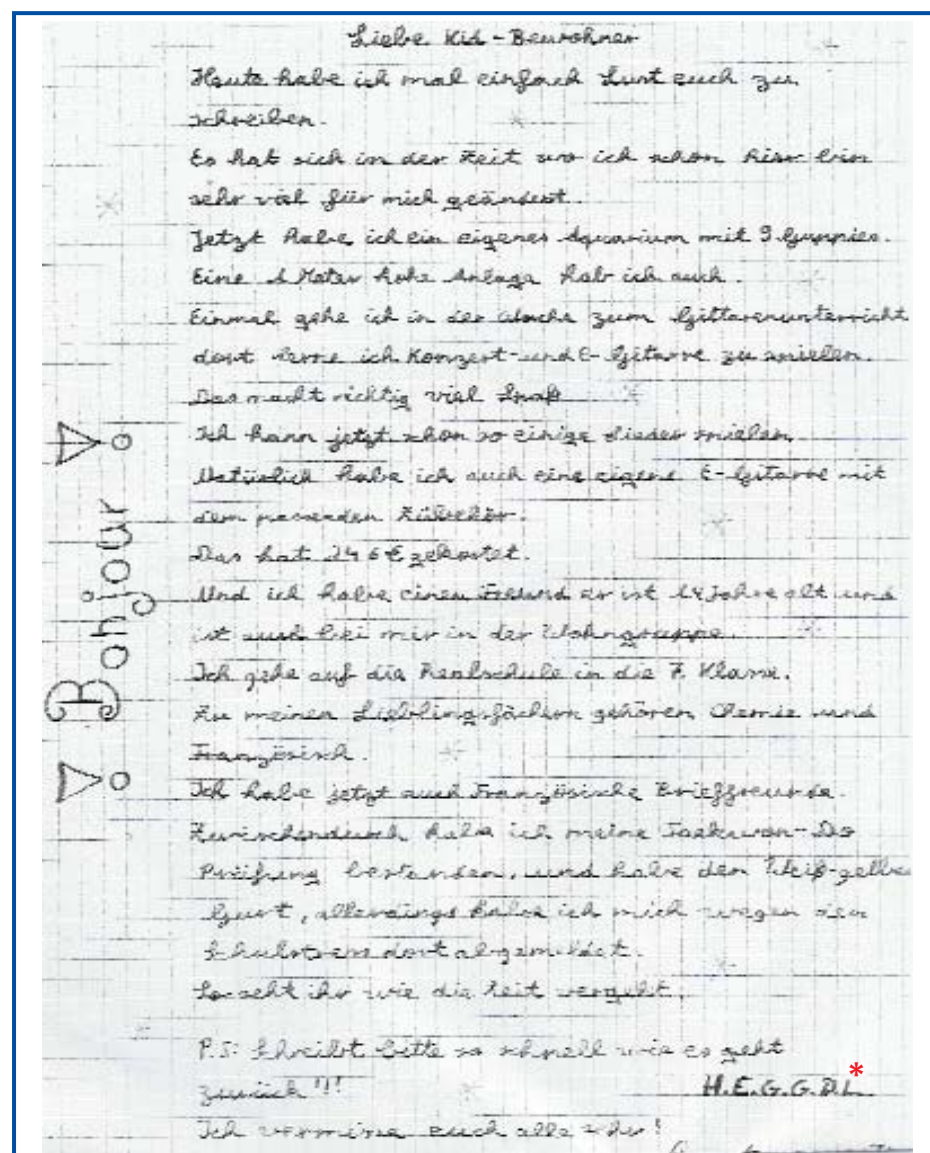 Liebe Kid-Bewohner
Heute habe ich mal einfach Lust euch zu
schreiben.
Es hat sich in der Zeit wo ich schon hier bin
sehr viel für mich geändert.
Jetzt habe ich ein eigenes Aquarium mit 9 Guppies.
Eine 1 Meter hohe Anlage hab ich auch.
Einmal gehe ich in der Woche zum Gittarenunterricht
dort lerne ich Konzert-und E-Gitarre zu spielen.
Das macht richtig viel Spaß
Ich kann jetzt schon so einige Lieder spielen.
Natürlich habe ich auch eine eigene E-Gitarre mit
dem passenden Zübehör.
Das hat 246€ gekostet.
Und ich habe einen Freund er ist 14 Jahre alt und
ist auch bei mir in der Wohngruppe.
Ich gehe auf die Realschule in die 7. Klasse.
Zu meinen Lieblingsfächern gehören Chemie und
Französisch.
Ich habe jetzt auch Französische Brieffreunde.
Zwischendurch habe ich meine Taekwon-Do
Prüfung bestanden, und habe den Weiß-gelben
Gurt, allerdings habe ich mich wegen den
Schulstress dort abgemeldet.
So seht ihr wie die Zeit vergeht.
P.S: Schreibt bitte so schnell wie es geht
zurück!!!
H.E.G.G.D.L *
Ich vermisse euch alle sehr!
Bonjour